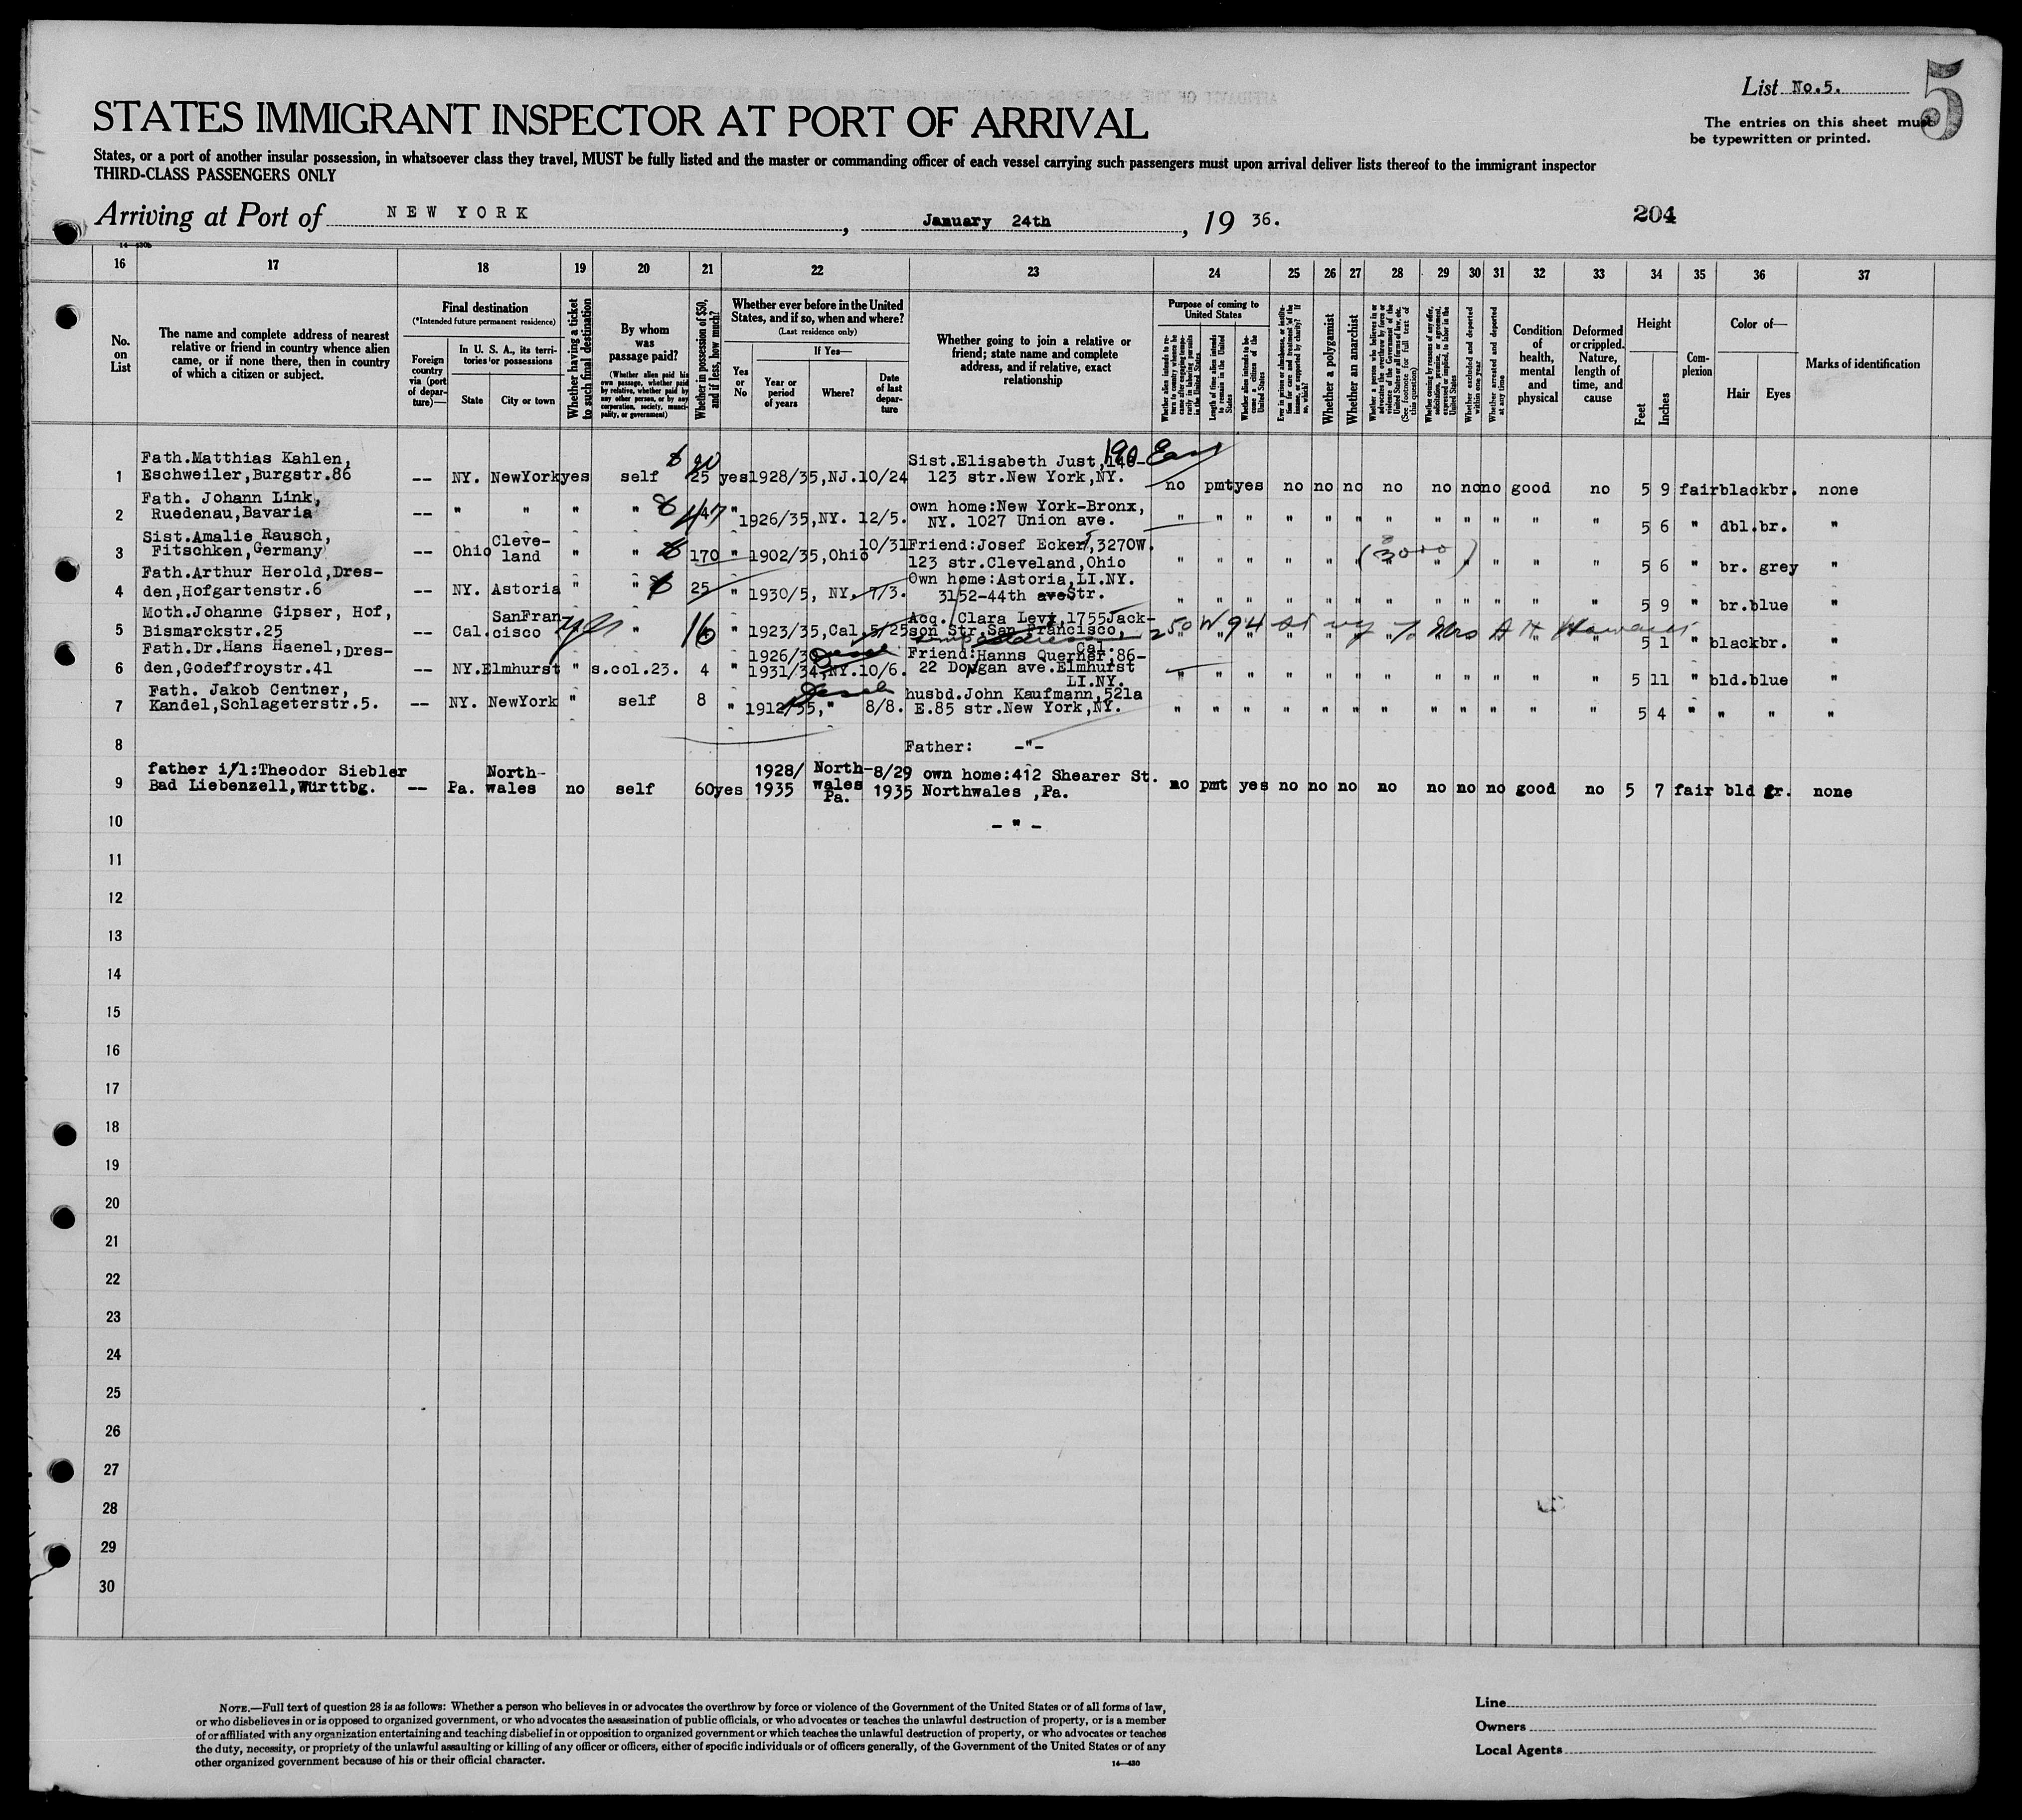 List No.5.
5
STATES IMMIGRANT INSPECTOR AT PORT OF ARRIVAL
The entries on this sheet must
be typewritten or printed.
States, or a port of another insular possession, in whatsoever class they travel, MUST be fully listed and the master or commanding officer of each vessel carrying such passengers must upon arrival deliver lists thereof to the immigrant inspector
THIRD-CLASS PASSENGERS ONLY
Arriving at Port of NEW YORK, January 24th, 19 36.
204
14-430b
16 17 18 19 20 21 22 23 24 25 26 27 28 29 30 31 32 33 34 35 36 37
No. on List
The name and complete address of nearest relative or friend in country whence alien came, or if none there, then in country of which a citizen or subject.
Final destination
(*Intended future permanent residence)
Foreign country via (port of departure)—
In U. S. A., its territories or possessions
State
City or town
Whether having a ticket to such final destination
By whom was passage paid?
(Whether alien paid his own passage, whether paid by relative, whether paid by any other person, or by any corporation, society, municipality, or government)
Whether in possession of $50, and if less, how much?
Whether ever before in the United States, and if so, when and where?
(Last residence only)
Yes or No
If Yes—
Year or period of years
Where?
Date of last departure
Whether going to join a relative or friend; state name and complete address, and if relative, exact relationship
Purpose of coming to United States
Whether alien intends to return to country whence he came after engaging temporarily in laboring pursuits in the United States
Length of time alien intends to remain in the United States
Whether alien intends to become a citizen of the United States
Ever in prison or almshouse, or institution for care and treatment of the insane, or supported by charity? If so, which?
Whether a polygamist
Whether an anarchist
Whether a person who believes in or advocates the overthrow by force or violence of the Government of the United States or all forms of law, etc. (See footnote for full text of this question)
Whether coming by reasons of any offer, solicitation, promise, or agreement, expressed or implied, to labor in the United States
Whether excluded and deported within one year
Whether arrested and deported at any time
Condition of health, mental and physical
Deformed or crippled. Nature, length of time, and cause
Height
Feet
Inches
Complexion
Color of—
Hair
Eyes
Marks of identification
1 Fath.Matthias Kahlen, Eschweiler,Burgstr.86 -- NY. NewYork yes self 25 yes 1928/35,NJ. 10/24 Sist.Elisabeth Just, 190 East 123 str.New York,NY. no pmt yes no no no no no no no good no 5 9 fair black br. none
2 Fath. Johann Link, Ruedenau,Bavaria -- " " " " 47 " 1926/35,NY. 12/5. own home:New York-Bronx, NY. 1027 Union ave. " " " " " " " " " " " " 5 6 " dbl.br. "
3 Sist.Amalie Rausch, Fitschken,Germany -- Ohio Cleveland " " 170 " 1902/35,Ohio 10/31 Friend:Josef Ecker, 3270W. 123 str.Cleveland,Ohio " " " " " " " " " " " " 5 6 " br. grey "
4 Fath.Arthur Herold,Dresden,Hofgartenstr.6 -- NY. Astoria " " 25 " 1930/5, NY. 7/3. Own home:Astoria,LI.NY. 3152-44th ave Str. " " " " " " " " " " " " 5 9 " br.blue "
5 Moth.Johanne Gipser, Hof, Bismarckstr.25 -- Cal. SanFrancisco yes " 16 " 1923/35,Cal. 5/25 Acq. Clara Levy,1755 Jackson Str.San Francisco, Cal. 250 W 94 St NY % Mrs A H 5 1 " black br. "
6 Fath.Dr.Hans Haenel,Dresden,Godeffroystr.41 -- NY. Elmhurst " s.col.23. 4 " 1931/34,NY. 10/6. Friend:Hanns Querner,86-22 Dongan ave.Elmhurst LI.NY. " " " " " " " " " " " " 5 11 " bld.blue "
7 Fath. Jakob Centner, Kandel,Schlageterstr.5. -- NY. NewYork " self 8 " 1912/35," 8/8. husbd.John Kaufmann,521a E.85 str.New York,NY. " " " " " " " " " " " " 5 4 " " " "
8 Father: -"-
9 father i/l:Theodor Siebler Bad Liebenzell,Württbg. -- Pa. Northwales no self 60 yes 1928/1935 Northwales Pa. 8/29 1935 own home:412 Shearer St. Northwales ,Pa. no pmt yes no no no no no no no good no 5 7 fair bld gr. none
10 - " -
11
12
13
14
15
16
17
18
19
20
21
22
23
24
25
26
27
28
29
30
NOTE.—Full text of question 28 is as follows: Whether a person who believes in or advocates the overthrow by force or violence of the Government of the United States or of all forms of law,
or who disbelieves in or is opposed to organized government, or who advocates the assassination of public officials, or who advocates or teaches the unlawful destruction of property, or is a member
of or affiliated with any organization entertaining and teaching disbelief in or opposition to organized government or which teaches the unlawful destruction of property, or who advocates or teaches
the duty, necessity, or propriety of the unlawful assaulting or killing of any officer or officers, either of specific individuals or of officers generally, of the Government of the United States or of any
other organized government because of his or their official character.
14-430
Line
Owners
Local Agents